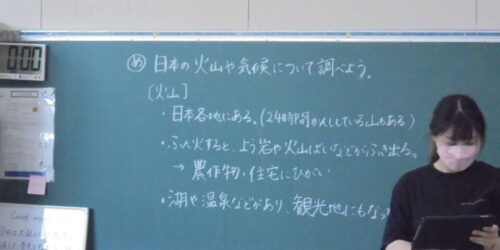 0:00
め 日本の火山や気候について調べよう。
[火山]
・日本各地にある。(24時間かんししている山もある)
・ふん火すると、よう岩や火山ばいなどがふき出る。
→ 農作物・住宅にひがい
・湖や温泉などがあり、観光地にもなっ
Good mo